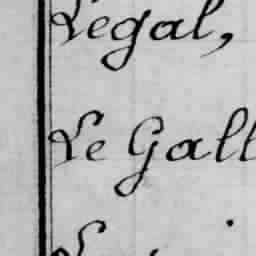 Legal,
Le Gall